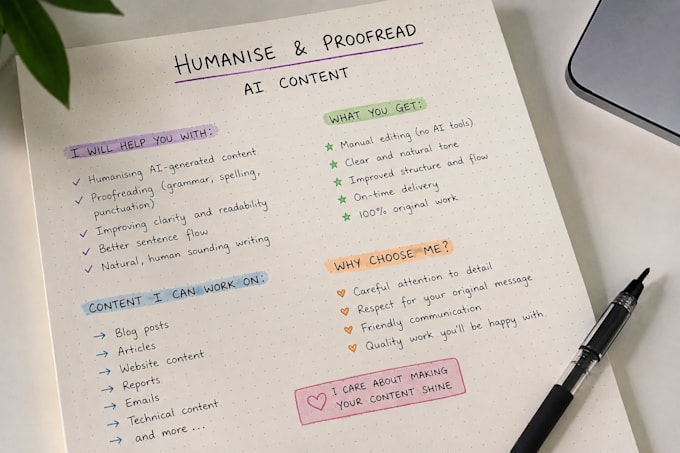 HUMANISE & PROOFREAD
AI CONTENT
I WILL HELP YOU WITH:
✓ Humanising AI-generated content
✓ Proofreading (grammar, spelling,
punctuation)
✓ Improving clarity and readability
✓ Better sentence flow
✓ Natural, human sounding writing
CONTENT I CAN WORK ON:
→ Blog posts
→ Articles
→ Website content
→ Reports
→ Emails
→ Technical content
→ and more ...
WHAT YOU GET:
★ Manual editing (no AI tools)
★ Clear and natural tone
★ Improved structure and flow
★ On-time delivery
★ 100% original work
WHY CHOOSE ME?
♡ Careful attention to detail
♡ Respect for your original message
♡ Friendly communication
♡ Quality work you'll be happy with
♡ I CARE ABOUT MAKING
YOUR CONTENT SHINE